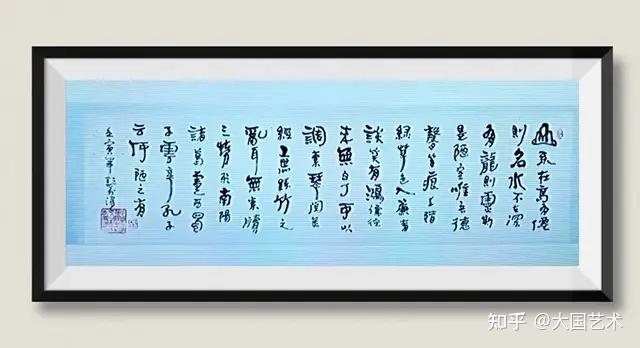 山不在高有僊
則名水不在深
有龍則靈斯
是陋室惟吾德
馨苔痕上階
綠草色入簾青
談笑有鴻儒往
来無白丁可以
調素琴閱金
經無絲竹之
亂耳無案牘
之勞形南陽
諸葛廬西蜀
子雲亭孔子
云何陋之有
壬寅年
知乎 @大国艺术